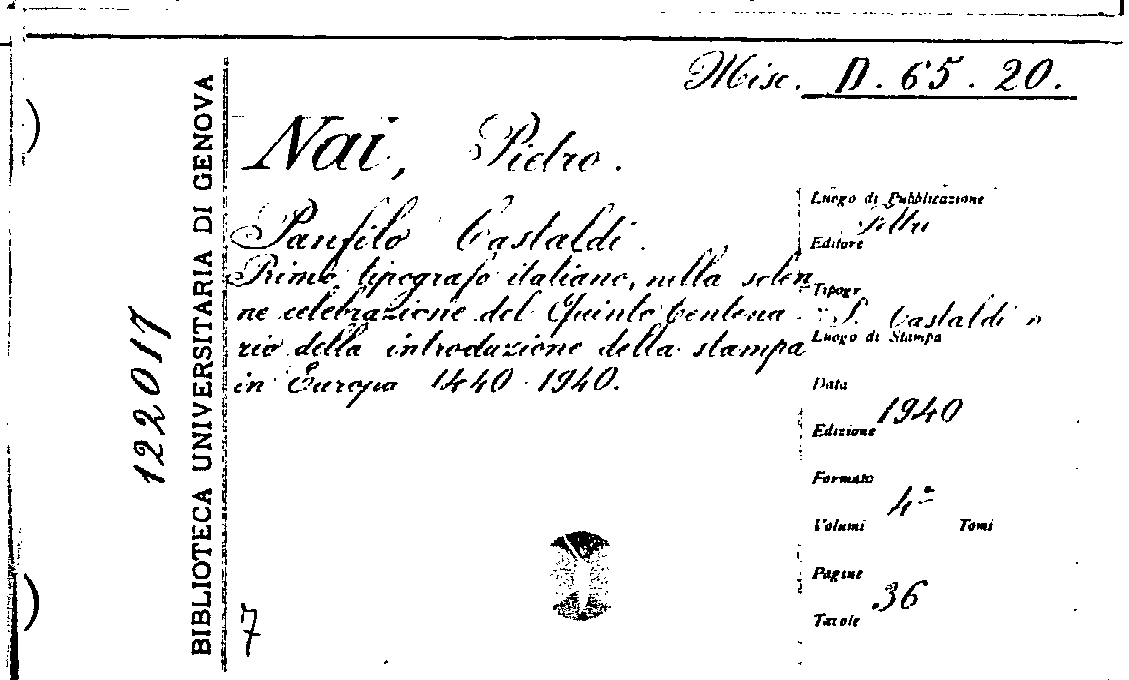 Misc. D. 65. 20.
Nai, Pietro.
Panfilo Castaldi.
Primo tipografo italiano, nella solen
ne celebrazione del Quinto Centena-
rio della introduzione della stampa
in Europa 1440-1940.
Luogo di Pubblicazione
Feltre
Editore
Tipogr
Castaldi
Luogo di Stampa
Data
1940
Edizione
Formato
4°
Volumi Tomi
Pagine
36
Tavole
7
BIBLIOTECA UNIVERSITARIA DI GENOVA
122017